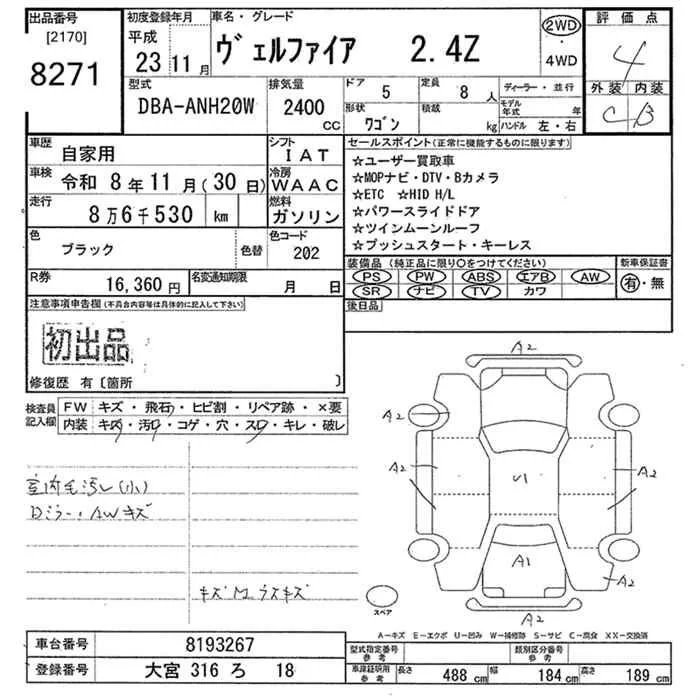 出品番号 初度登録年月 車名・グレード 評価点
[2170] 平成 ヴェルファイア 2.4Z 2WD
8271 23 11月 ・ 4WD 4
型式 排気量 ドア 5 定員 8人 ディーラー・並行 外装 内装
DBA-ANH20W 2400 CC 形状 ワゴン 積載 kg モデル年式 年 C B
ハンドル 左・右
車歴 自家用 シフト IAT セールスポイント(正常に機能するものに限ります)
車検 令和 8年 11月(30日) 冷房 WAAC ☆ユーザー買取車
☆MOPナビ・DTV・Bカメラ
走行 8万6千530 km 燃料 ガソリン ☆ETC ☆HID H/L
☆パワースライドドア
色 ブラック 色替 色コード 202 ☆ツインムーンルーフ
☆プッシュスタート・キーレス
R券 16,360円 名変通知期限 月 日 装備品(純正品に限り○をつけてください) 新車保証書
PS PW ABS エアB AW 有・無
SR ナビ TV カワ
注意事項申告欄(不具合内容等は具体的に記入して下さい) 後日品
初出品
修復歴 有〔箇所 〕
検査員記入欄 FW キズ・飛石・ヒビ割・リペア跡・×要
内装 キズ・汚レ・コゲ・穴・スレ・キレ・破レ
A2
A2
A2 U1 A2
室内モ汚レ(小)
Dミラー、AWキズ
A1
A2
キズ
スペア A2
A-キズ E-エクボ U-凹み W-補修跡 S-サビ C-腐食 XX-交換済
車台番号 8193267 型式指定番号 参考 類別区分番号 参考
登録番号 大宮 316 ろ 18 車庫証明用 参考 長さ 488 cm 幅 184 cm 高さ 189 cm